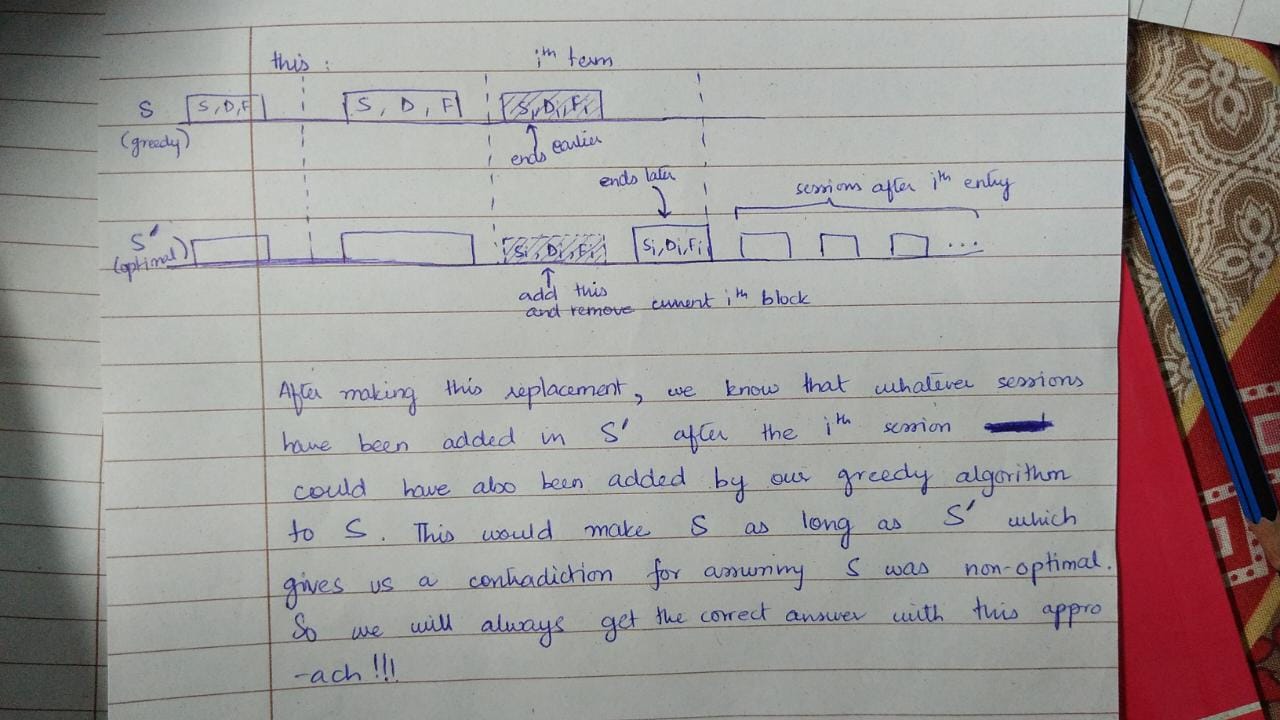 this : iᵗʰ term
S S,D,F S, D, F Si,Di,Fi
(greedy) ends earlier
ends later sessions after iᵗʰ entry
S′ Si, Di, Fi Si,Di,Fi ...
(optimal)
add this
and remove current iᵗʰ block
After making this replacement, we know that whatever sessions
have been added in S′ after the iᵗʰ session
could have also been added by our greedy algorithm
to S. This would make S as long as S′ which
gives us a contradiction for assuming S was non-optimal.
So we will always get the correct answer with this appro
-ach !!!